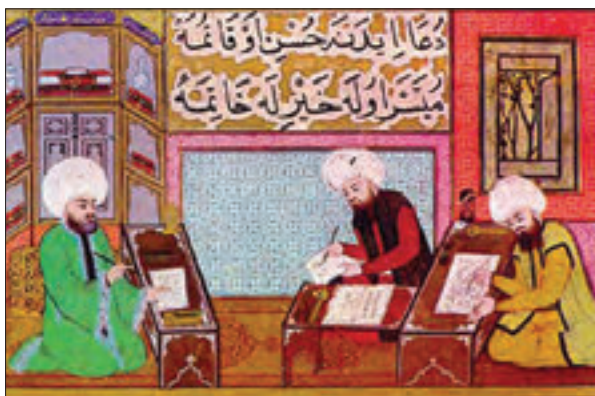 دُعَا ايدنه حُسْنِ اوقاتمه
مُيَسَّر اوله خَيْرِله خَاتِمَه